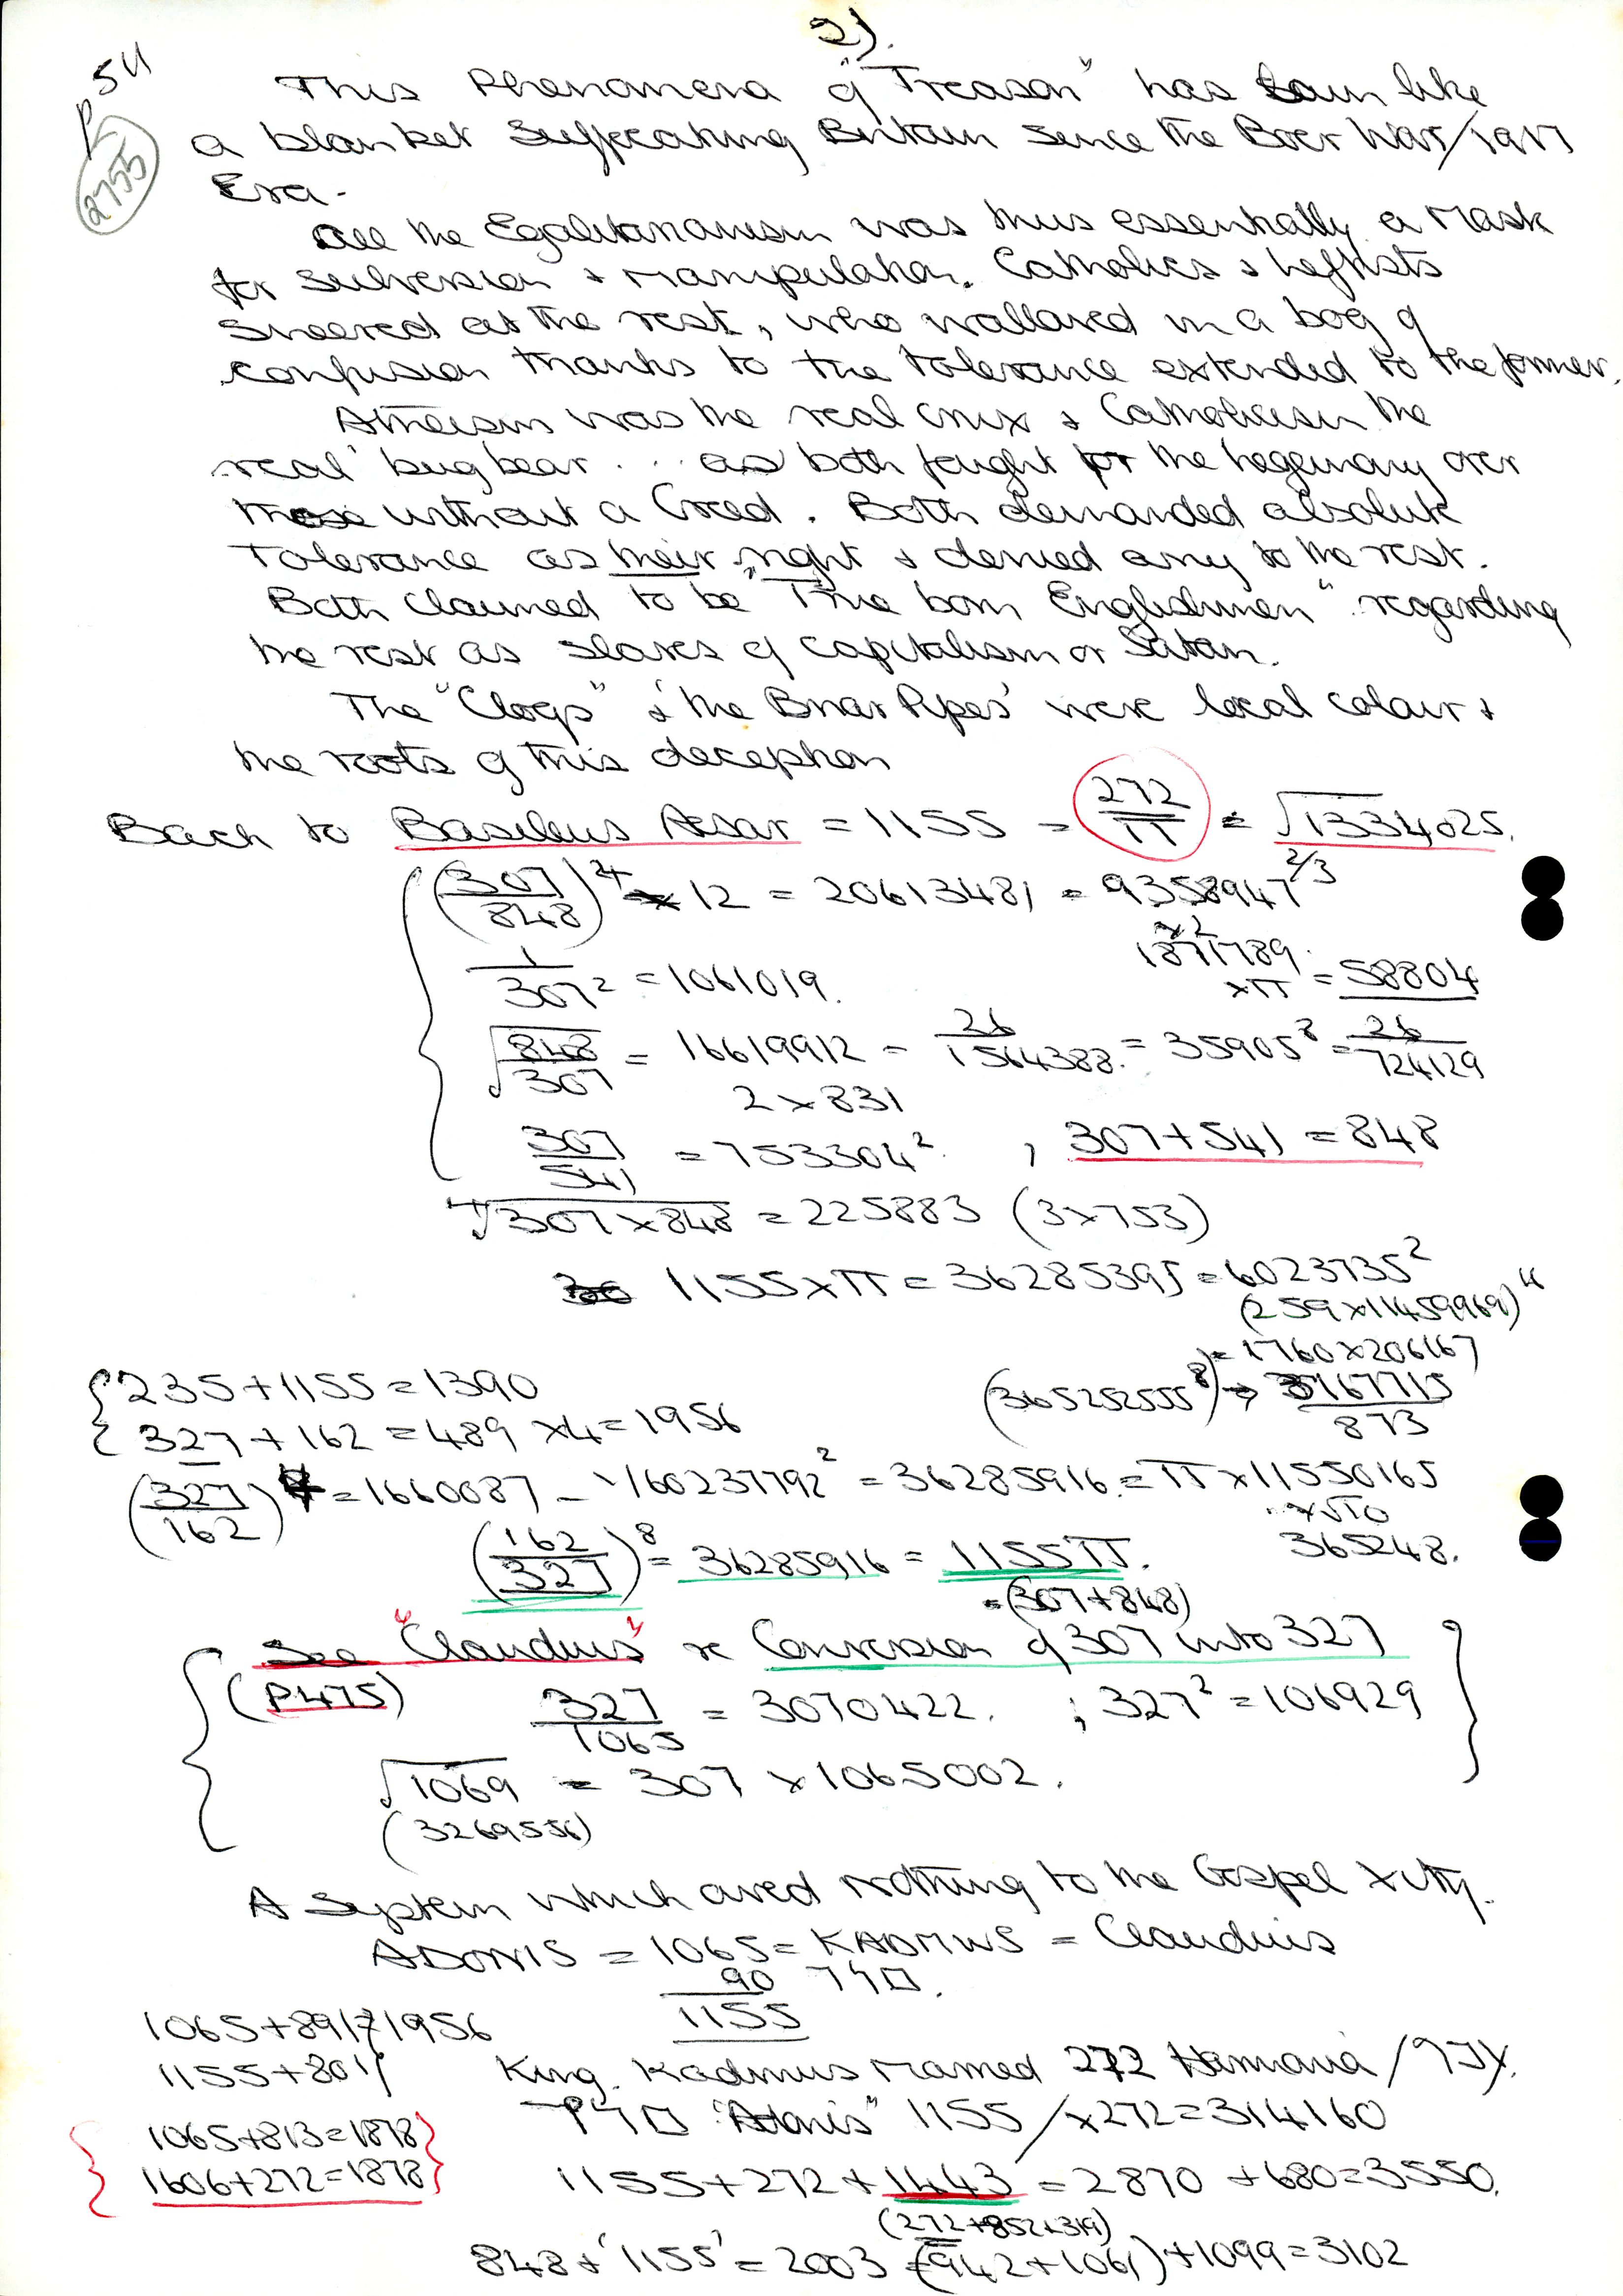 2).
P 54
2755
This Phenomena of "Treason" has lain like
a blanket suffocating Britain since the Boer War/1917
Era.
All the Egalitarianism was thus essentially a Mask
for subversion & manipulation. Catholics & Leftists
sneered at the rest, who wallowed in a bog of
confusion thanks to the tolerance extended to the former.
Atheism was the real crux & Catholicism the
real bugbear ... as both fought for the hegemony over
those without a Creed. Both demanded absolute
Tolerance as their right & denied any to the rest.
Both claimed to be "True born Englishmen" regarding
the rest as slaves of capitalism or Satan.
The "Clogs" & 'the Briar Pipes' were local colour &
the roots of this deception
Back to Basileus Aesar = 1155 = 272/π = √1334025.
(307/848)⁴ × 12 = 20613481 = 9358947^2/3
×2
1871789
×π = 58804
1/307² = 1061019.
√848/307 = 16619912 = 26/1564388. = 35905⁸ = 26/724129
2 × 831
307/541 = 753304² , 307 + 541 = 848
√307×848 = 225883 (3×753)
1155 × π = 36285395 = 6023735²
(259×11459969)⁴
= 1760×206167
{235 + 1155 = 1390
(365252555⁸) → 3167715/873
327 + 162 = 489 ×4 = 1956
(327/162)⁴ = 1660087 – 160237792² = 36285916 = π × 11550165
×√10
365248.
(162/327)⁸ = 36285916 = 1155π.
= (307+848)
See "Claudius" re Conversion of 307 into 327
(P475) 327/1065 = 3070422. ; 327² = 106929
√1069 = 307 × 1065002.
(3269556)
A System which owed nothing to the Gospel Xity.
ADONIS = 1065 = KADMWS = Claudius
90 דוד
1155
1065+891=1956
1155+801
King Kadmus married 272 Harmonia /
"Adonis" 1155 / ×272 = 314160
1065+813=1878
1606+272=1878
1155+272+1443 = 2870 +680=3550.
(272+852+319)
848+'1155' = 2003 = (942+1061)+1099=3102